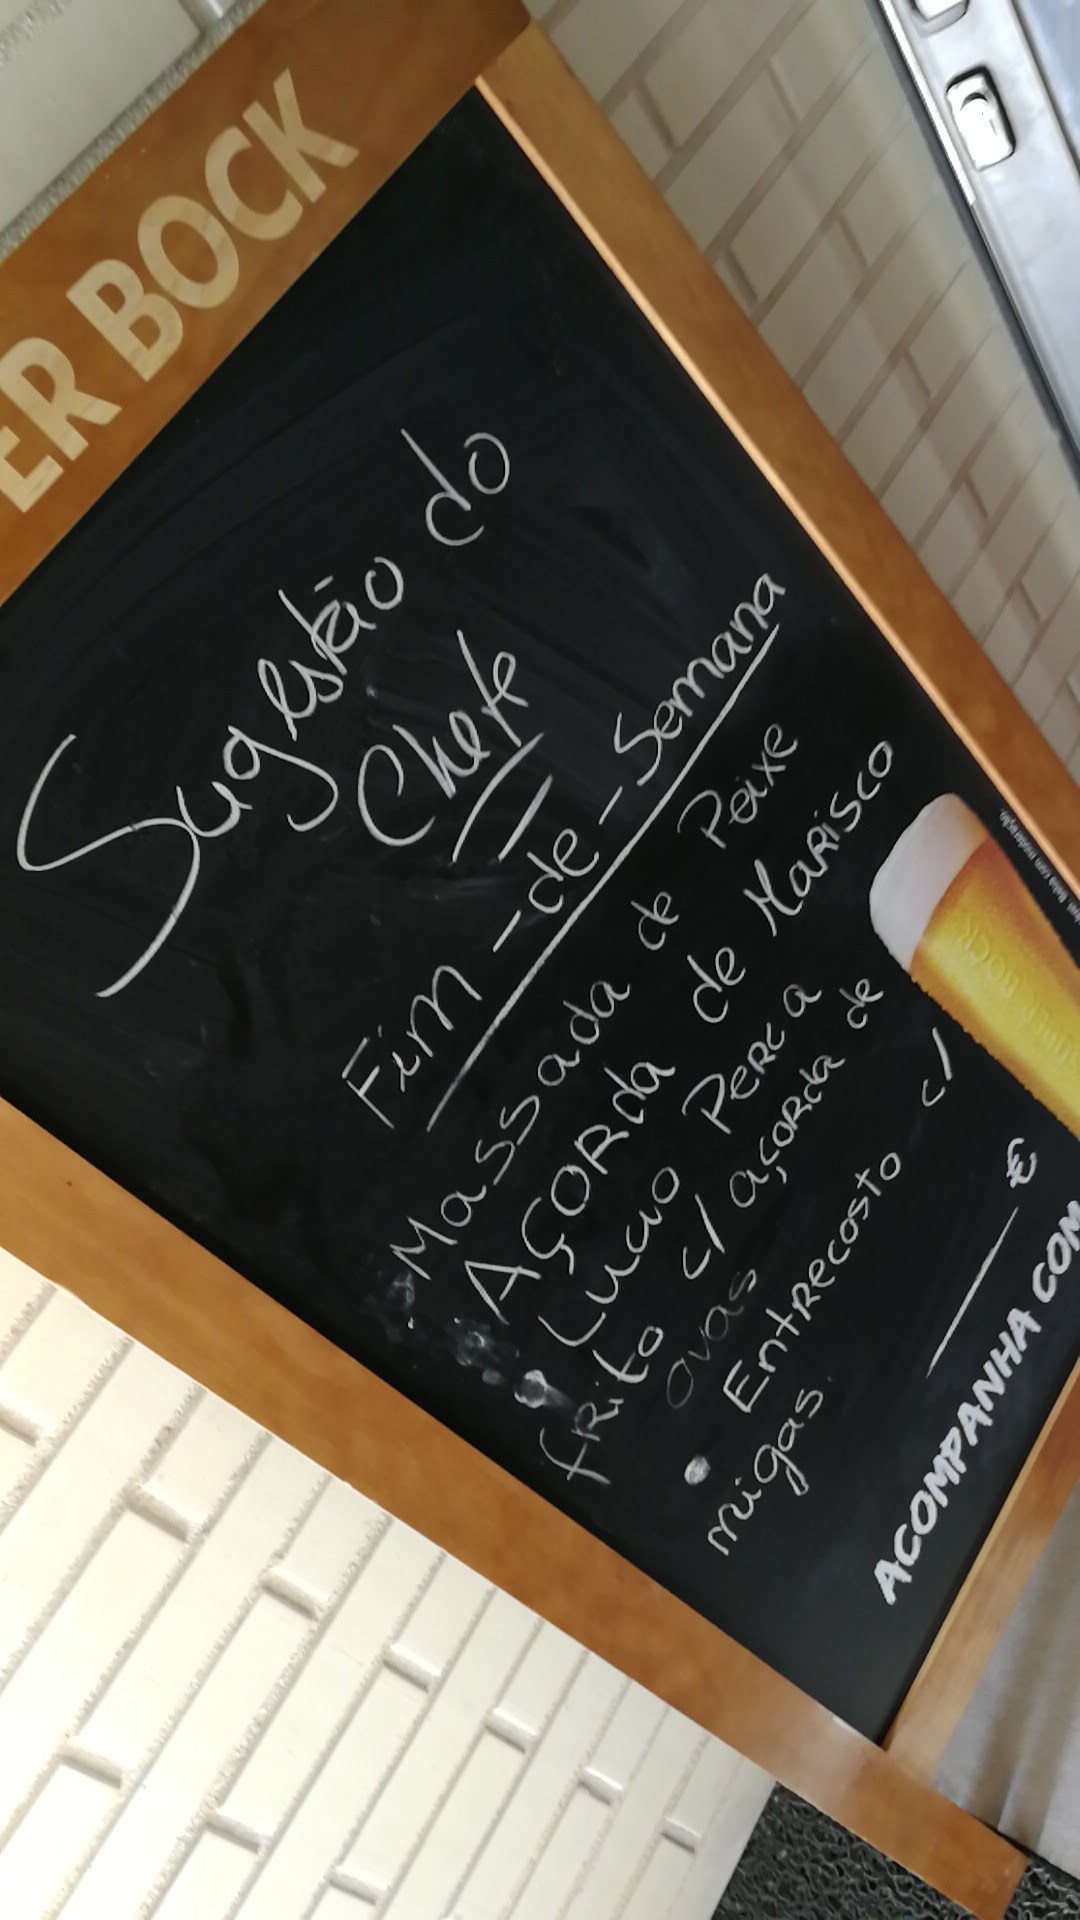 ER BOCK
Sugestão do
Chefe
Fim-de-Semana
Massada de Peixe
AÇORda de MARISCO
Lucio PERCA
fRito c/ açorda de
ovas
Entrecosto c/
migas.
€
ACOMPANHA COM